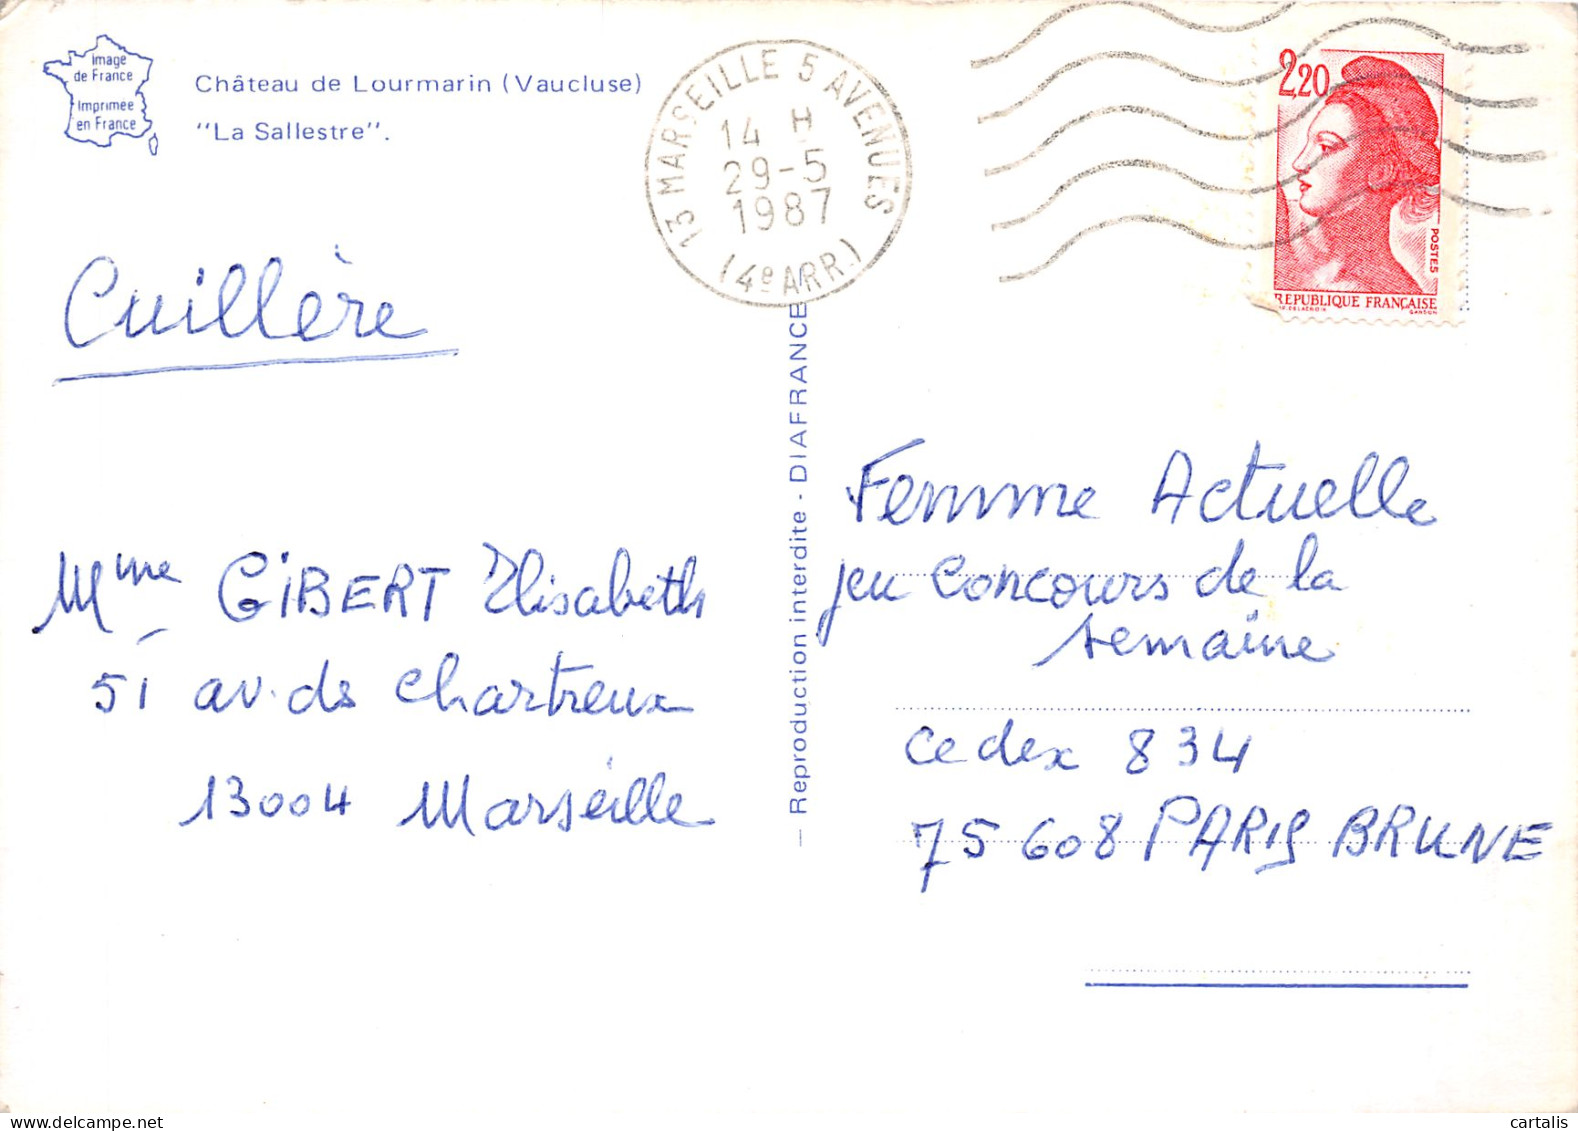 Image
de France
Imprimée
en France
Château de Lourmarin (Vaucluse)
"La Sallestre".
13 MARSEILLE 5 AVENUES
14 H
29-5
1987
(4e ARR.)
2,20
POSTES
REPUBLIQUE FRANÇAISE
GANDON
Cuillère
Mme GIBERT Elisabeth
51 av. ds Chartreux
13004 Marseille
— Reproduction interdite - DIAFRANCE
Femme Actuelle
jeu concours de la
semaine
Cedex 834
75608 PARIS BRUNE
cartalis